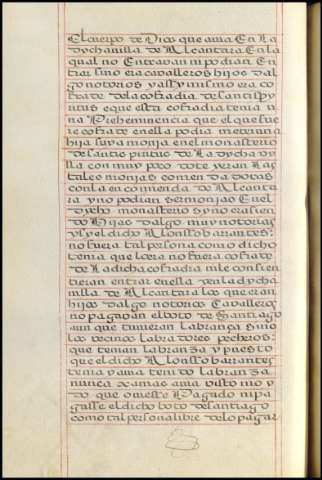 El cuerpo de Dios que auia En la
dycha villa de Alcantara En la
qual no Entrauan ni podian En
trar sino era cavalleros hijos dal
go notorios y assy mismo era co
frate de la cofradia de santispi
ritus e que esta cofradia tenia u
na Preheminencia que el que fue
re cofrate en ella podia meter una
hija suya monja en el monasterio
de santispiritus de La dycha vy
lla con muy poco dote yeran Las
tales monjas comendadoras
con la encomienda de Alcanta
ra y no podian ser monjas En el
dycho monasterio syno eran
de Hijos dalgo muy notorios
y sy el dicho Alonsso barrantes
no fuera tal persona como dicho
tenia que lo era no fuera cofrate
de La dicha cofradia ni le consien
tieran entrar en ella y en la dycha
villa de Alcantara los que eran
hijos dalgo notorios Cavalleros
no pagauan el boto de Santiago
aun que tuuieran Labrança sino
los vecinos Labradores pecheros
que tenian Labranza y puesto
que el dicho Alonsso barrantes
tenia y auia tenido Labranza
nunca xamas auia visto ni oy
do que oviesse Pagado ni pa
gasse el dicho boto de santiago
como tal persona libre de lo pagar